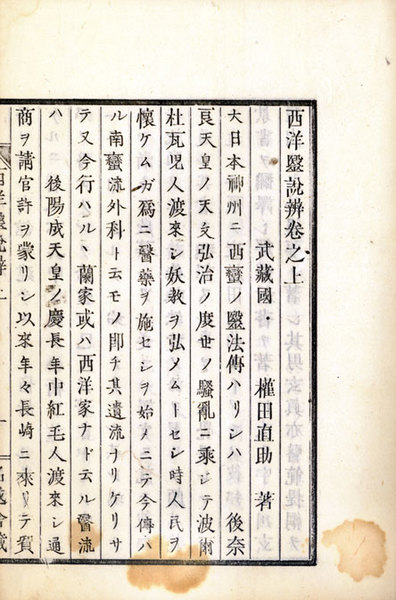 西洋毉說辨卷之上
武藏國・權田直助 著
大日本神州ニ西蠻ノ毉法傳ハリシハ 後奈
良天皇ノ天文弘治ノ度世ノ騷亂ニ乘シテ波爾
杜瓦児人渡來シ妖教ヲ弘メムトセシ時人民ヲ
懷ケムガ爲ニ醫藥ヲ施セシヲ始メニテ今傳ハ
ル南蠻流外科ト云モノ即チ其遺流ナリケリサ
テ又今行ハルヽ蘭家或ハ西洋家ナド云ル醫流
ハルニ 後陽成天皇ノ慶長年中紅毛人渡來シ通
商ヲ請官許ヲ蒙リシ以來年々長崎ニ來リテ貿
西洋毉說辨 上
名越舎藏